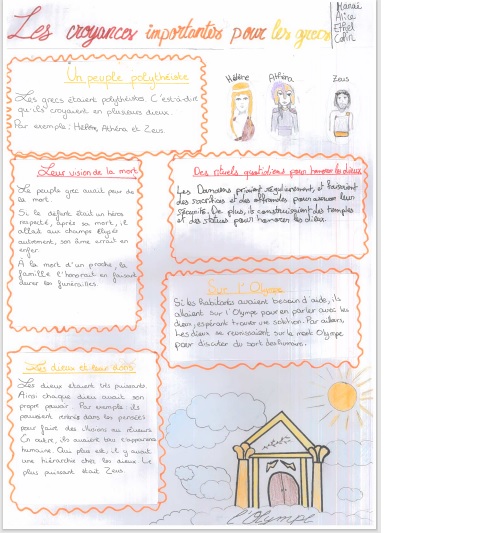 Les croyances importantes pour les grecs
Manaï
Alice
Ethel
Colin
Un peuple polythéiste
Les grecs étaient polythéistes. C'est-à-dire
qu'ils croyaient en plusieurs dieux.
Par exemple : Hélène, Athéna et Zeus.
Hélène
Athéna
Zeus
Leur vision de la mort
Le peuple grec avait peur de
la mort.
Si le défunt était un héros
respecté, après sa mort, il
allait aux champs
autrement, son âme errait en
enfer.
À la mort d'un proche, la
famille l'honorait en faisant
durer les funérailles.
Des rituels quotidiens pour honorer les dieux
Les Danaens priaient régulièrement, et faisaient
des sacrifices et des offrandes pour avoir leur
sécurité. De plus, ils construisaient des temples
et des statues pour honorer les dieux.
Sur l'Olympe
Si les habitants avaient besoin d'aide, ils
allaient sur l'Olympe pour en parler avec les
dieux, espérant trouver une solution. Par ailleurs,
les dieux se réunissaient sur le mont Olympe
pour discuter du sort des humains.
Les dieux et leurs dons
Les dieux étaient très puissants.
Ainsi chaque dieu avait son
propre pouvoir. Par exemple : ils
pouvaient rentrer dans les pensées
pour faire des illusions ou rêveurs.
En outre, ils avaient tous l'apparence
humaine. Qui plus est, il y avait
une hiérarchie chez les dieux. Le
plus puissant était Zeus.
L'Olympe